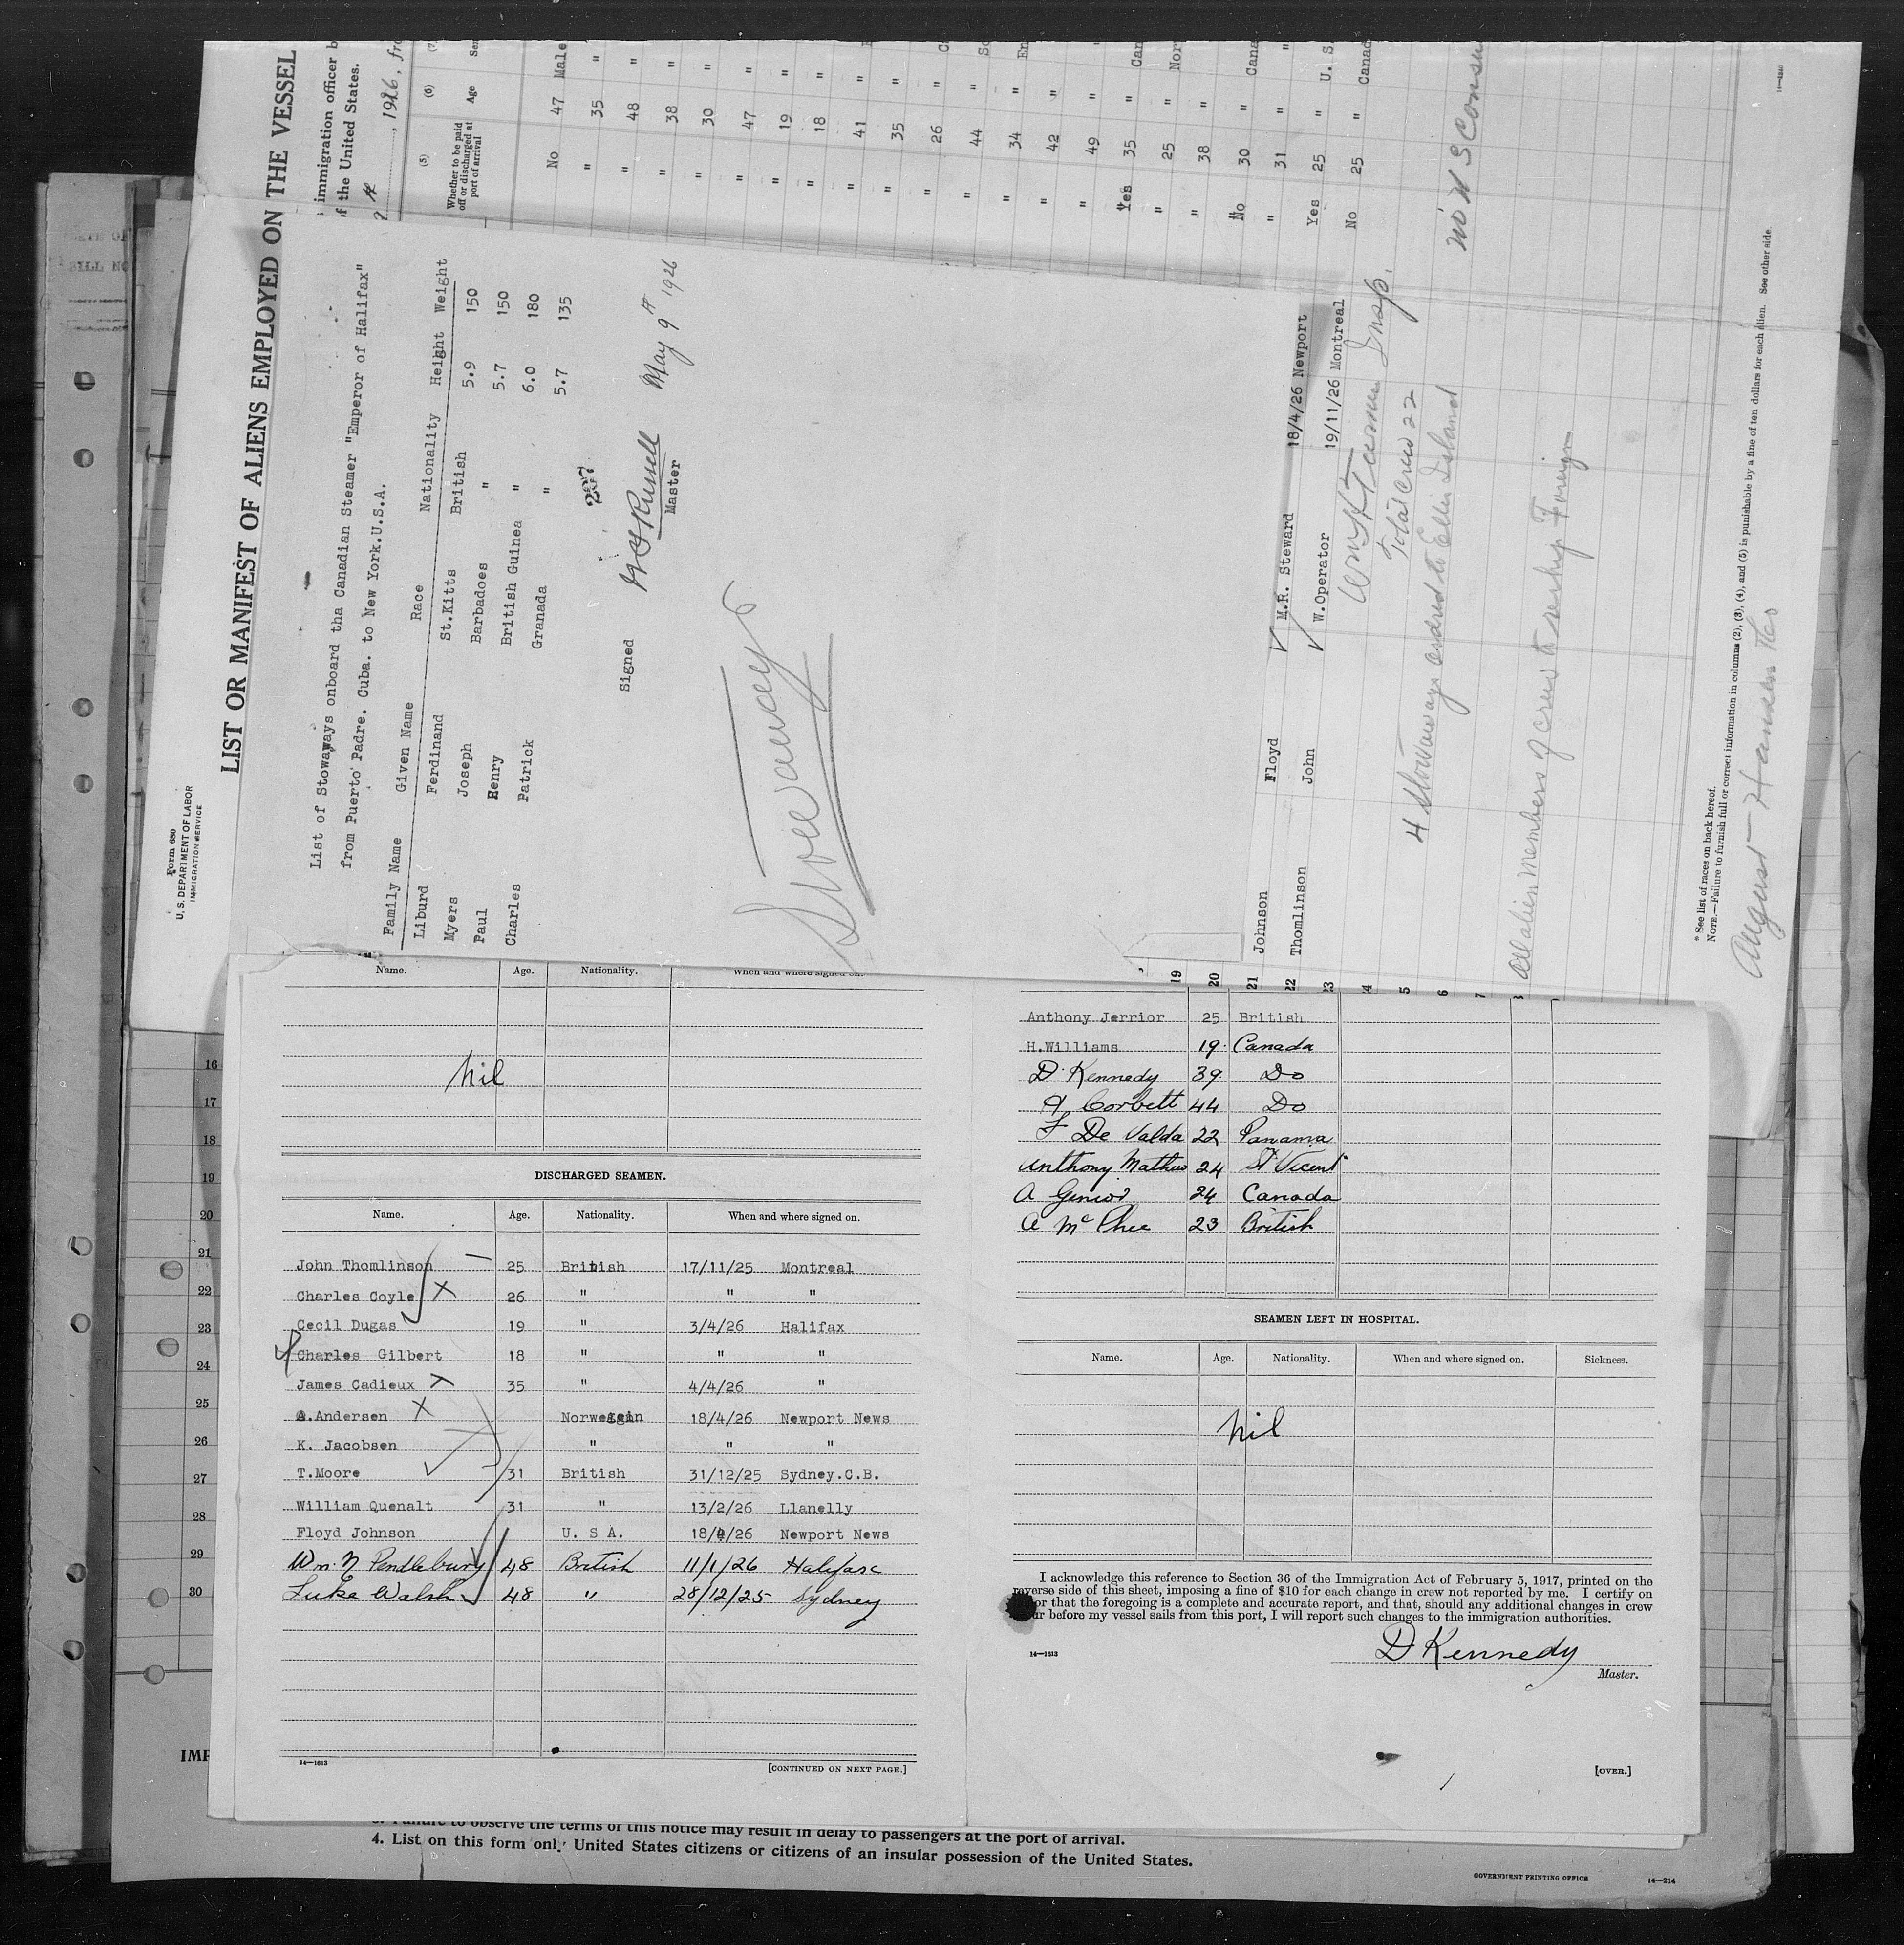 Form 680
U. S. DEPARTMENT OF LABOR
IMMIGRATION SERVICE
LIST OR MANIFEST OF ALIENS EMPLOYED ON THE VESSEL
immigration officer
of the United States.
, 1926, fro
(5) (6) (7)
Whether to be paid off or discharged at port of arrival Age
No 47 Male
" 35 "
" 48 "
" 38 "
" 30 "
" 47 "
" 19 "
" 18 "
" 41 "
" 35 "
" 26 "
" 44 "
" 34 "
" 42 "
" 49 "
Yes 35 " Can
" 25 " Nor
" 38 "
No 30 " Cana
" 31 " "
Yes 25 " U. S.
No 25 " Canad
List of Stowaways onboard tha Canadian Steamer "Emperor of Halifax"
from Puerto Padre. Cuba. to New York.U.S.A.
Family Name Given Name Race Nationality Height Weight
Liburd Ferdinand St.Kitts British 5.9 150
Myers Joseph Barbadoes " 5.7 150
Paul Henry British Guinea " 6.0 180
Charles Patrick Granada " 5.7 135
207
Signed Russell May 9th 1926
Master
Stowaways
Johnson Floyd M.R. Steward 18/4/26 Newport
Thomlinson John W.Operator 19/11/26 Montreal
Insp.
Total Crew 22
4 Stowaways ordred to Ellis Island
No U S Consu
All alien members of crew to reship Foreign
* See list of races on back hereof.
NOTE.—Failure to furnish full or correct information in columns (2), (3), (4), and (5) is punishable by a fine of ten dollars for each alien. See other side.
August
Name. Age. Nationality. When and where signed on.
Nil
DISCHARGED SEAMEN.
Name. Age. Nationality. When and where signed on.
John Thomlinson 25 British 17/11/25 Montreal
Charles Coyle X 26 " " "
Cecil Dugas 19 " 3/4/26 Halifax
Charles Gilbert 18 " " "
James Cadieux X 35 " 4/4/26 "
A.Andersen X Norwegain 18/4/26 Newport News
K. Jacobsen " " "
T.Moore 31 British 31/12/25 Sydney.C.B.
William Quenalt 31 " 13/2/26 Llanelly
Floyd Johnson U. S A. 18/4/26 Newport News
Wm. N Pendlebury 48 British 11/1/26 Halifax
Luke Walsh 48 " 28/12/25 Sydney
14—1613
[CONTINUED ON NEXT PAGE.]
19
20
21
22
23
Anthony Jerrior 25 British
H.Williams 19. Canada
D Kennedy 39 Do
Corbett 44 Do
F De Valda 22 Panama
Anthony Mathew 24 St Vicent
A Genior 24 Canada
A McPhee 23 British
SEAMEN LEFT IN HOSPITAL.
Name. Age. Nationality. When and where signed on. Sickness.
Nil
I acknowledge this reference to Section 36 of the Immigration Act of February 5, 1917, printed on the
reverse side of this sheet, imposing a fine of $10 for each change in crew not reported by me. I certify on
or that the foregoing is a complete and accurate report, and that, should any additional changes in crew
ur before my vessel sails from this port, I will report such changes to the immigration authorities.
D Kennedy
Master.
14—1613
[OVER.]
16
17
18
19
20
21
22
23
24
25
26
27
28
29
30
IMP
3. Failure to observe the terms of this notice may result in delay to passengers at the port of arrival.
4. List on this form only United States citizens or citizens of an insular possession of the United States.
GOVERNMENT PRINTING OFFICE 14—214